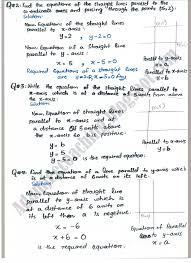 Q#02: Find the equations of the straight lines parallel to the
co-ordinate axes and passing through the points (5,2).
Solution:
Now Equation of the straight lines
parallel to x-axis:
y=2, y-2=0
Now Equation of a Straight line
parallel to y-axis:
x=5, x-5=0
Required Equations of a straight lines
Parallel to y-axis
x=a
Parallel to x-axis
y=b
Q#03: Write the equation of the straight line parallel to
x-axis which is at a distance of 6 units from above
the x-axis.
Solution:
Now Equation of straight line
parallel to x-axis and at
a distance of 6 units above
the x-axis is:
y=b
y=6
y-6=0 is the required equation.
Equation
parallel to
x-axis
y=b
Find the equation of a line parallel to y-axis which
is at a distance of 6 units on its left.
Solution:
Now Equation of straight line
parallel to y-axis which is
at a distance of 6 units on
its left then a is negative.
x=-6
x+6=0
is the required equation.
Equation of Parallel
to y-axis
x=a